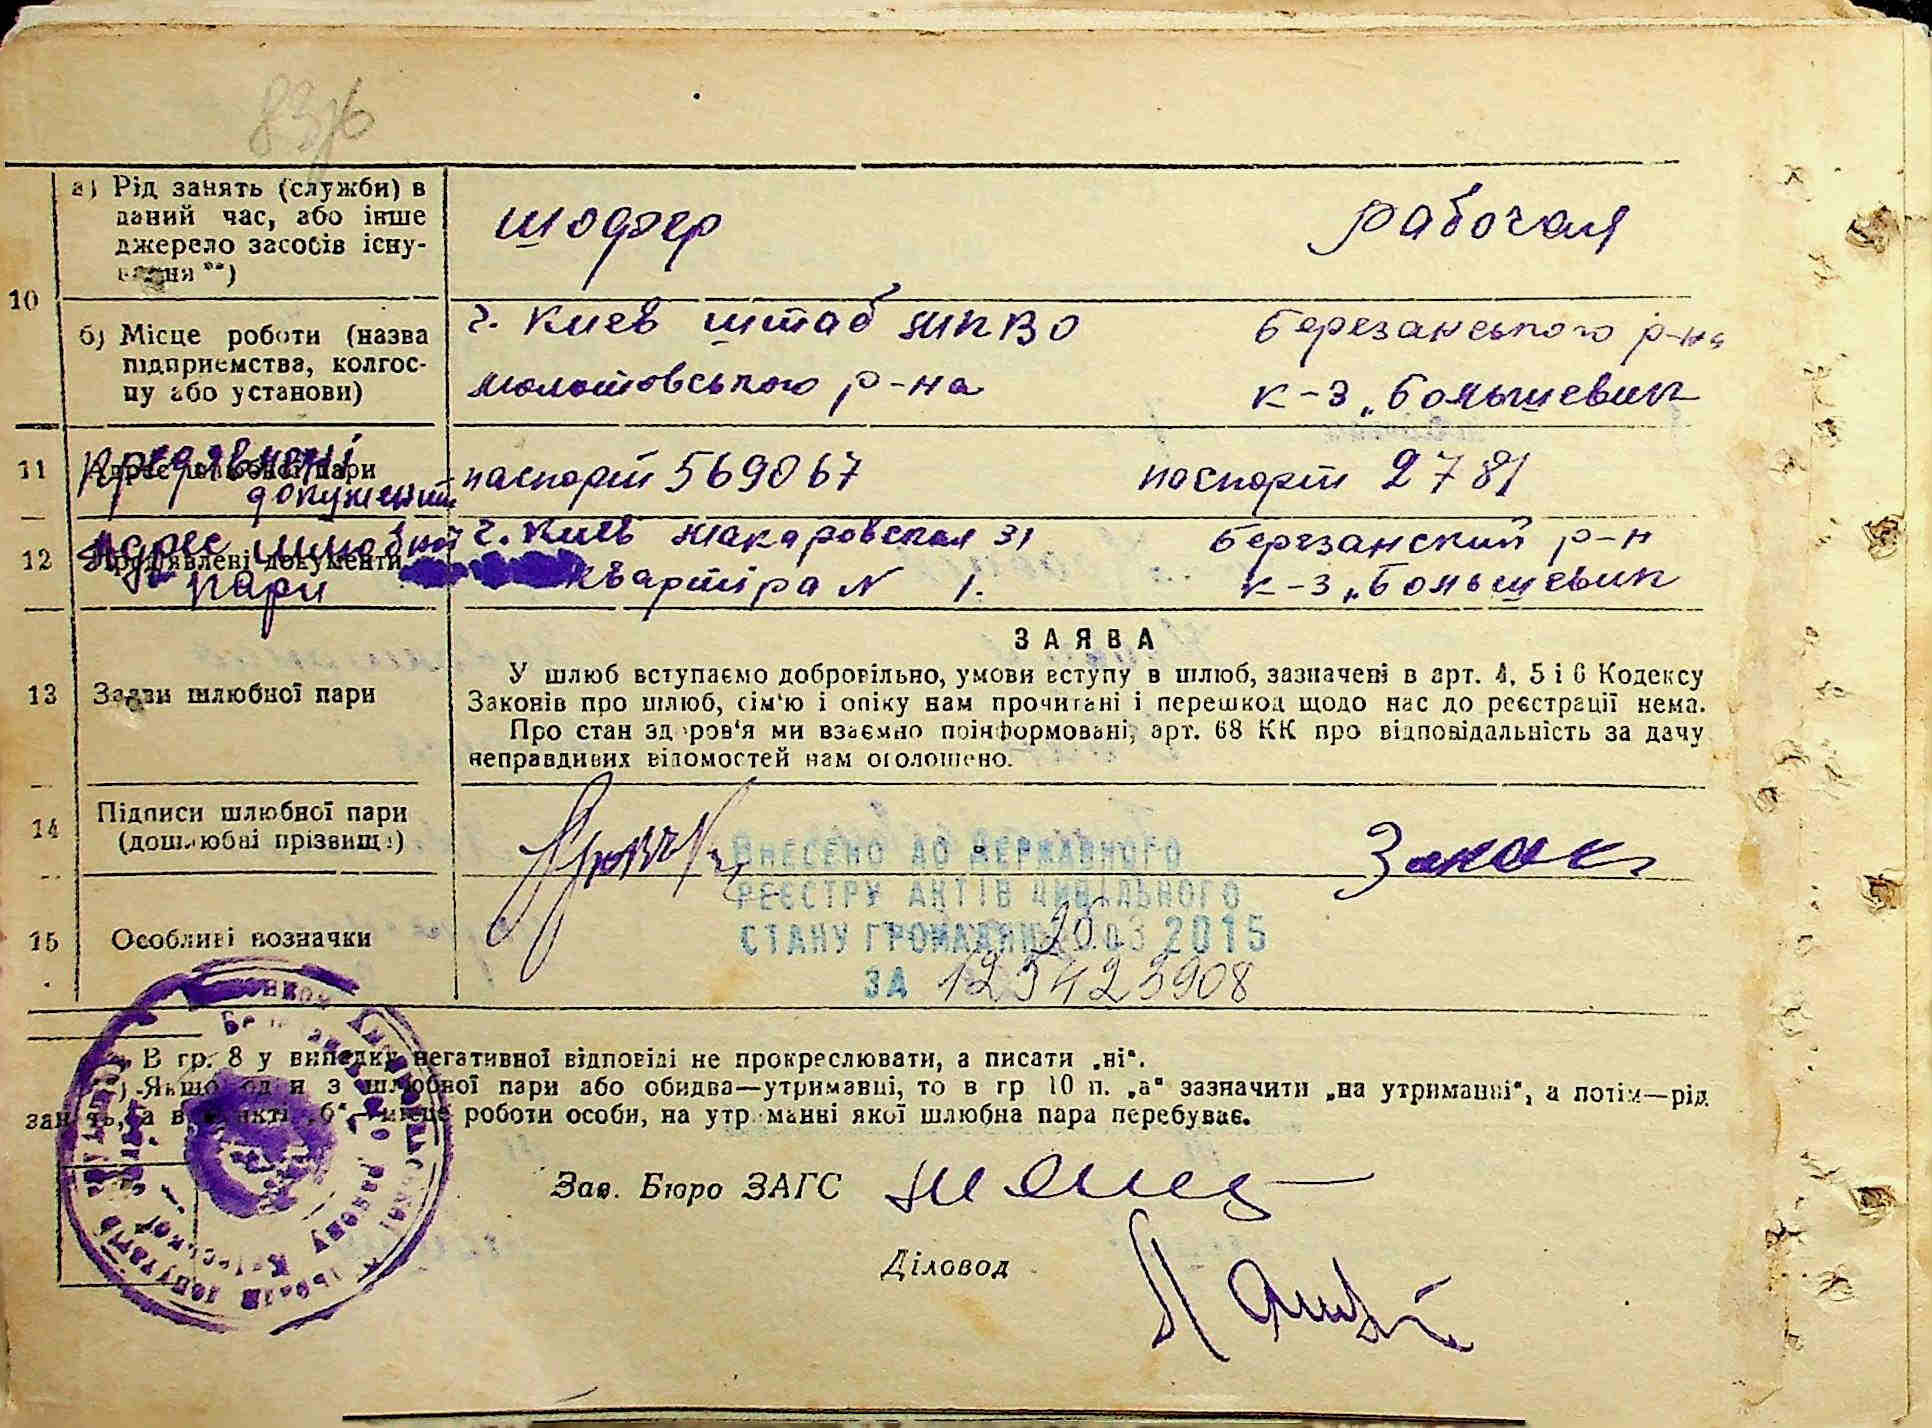 10
а) Рід занять (служби) в
даний час, або інше
джерело засобів існу-
вання **)
шофер
рабочая
б) Місце роботи (назва
підприємства, колгос-
пу або установи)
г. Киев штаб МПВО
Молотовського р-на
Березанського р-на
к-з „Большевик
11
Адрес шлюбної пари
Предявлені
документи
паспорт 569067
паспорт 2781
12
Пред'явлені документи
Адрес шлюбної
пари
г. Киев Макаровская 31
квартіра № 1.
Березанский р-н
к-з „Большевик
13
Заяви шлюбної пари
ЗАЯВА
У шлюб вступаємо добровільно, умови вступу в шлюб, зазначені в арт. 4, 5 і 6 Кодексу
Законів про шлюб, сім'ю і опіку нам прочитані і перешкод щодо нас до реєстрації нема.
Про стан здоров'я ми взаємно поінформовані, арт. 68 КК про відповідальність за дачу
неправдивих відомостей нам оголошено.
14
Підписи шлюбної пари
(дошлюбні прізвища)
ВНЕСЕНО ДО ДЕРЖАВНОГО
РЕЄСТРУ АКТІВ ЦИВІЛЬНОГО
СТАНУ ГРОМАДЯН 20.03 2015
ЗА 123423908
15
Особливі возначки
В гр. 8 у випадку негативної відповіді не прокреслювати, а писати „ні“.
**) Якщо один з шлюбної пари або обидва—утриманці, то в гр 10 п. „а“ зазначити „на утриманні“, а потім—рід
занять, а в пункті „б“—місце роботи особи, на утриманні якої шлюбна пара перебуває.
Зав. Бюро ЗАГС
Діловод